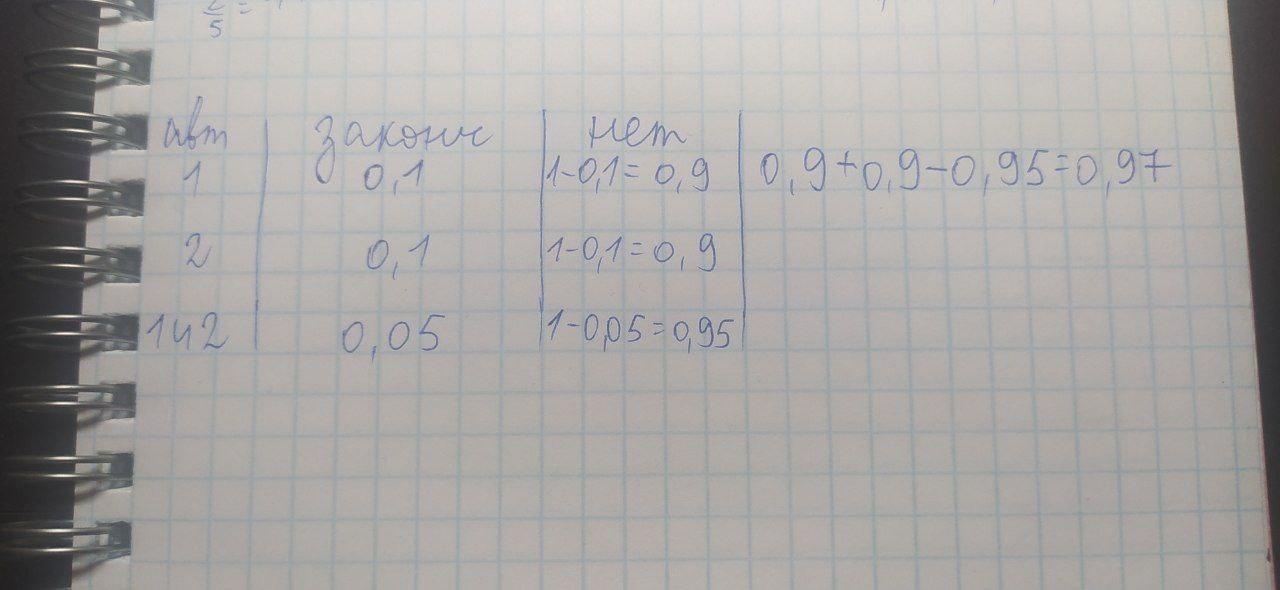 5 =
авт законч нет
1 0,1 1-0,1=0,9 0,9+0,9-0,95=0,97
2 0,1 1-0,1=0,9
1и2 0,05 1-0,05=0,95